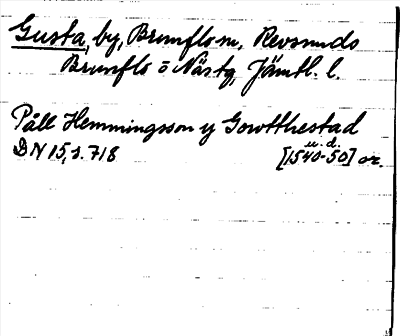 Gusta, by, Brunflo sn, Revsunds
Brunflo o Näs tg, Jämtl. l.
Påll Hemmingsson y Gowtthestad
u. d.
DN 15, s. 718 [1540-50] or.